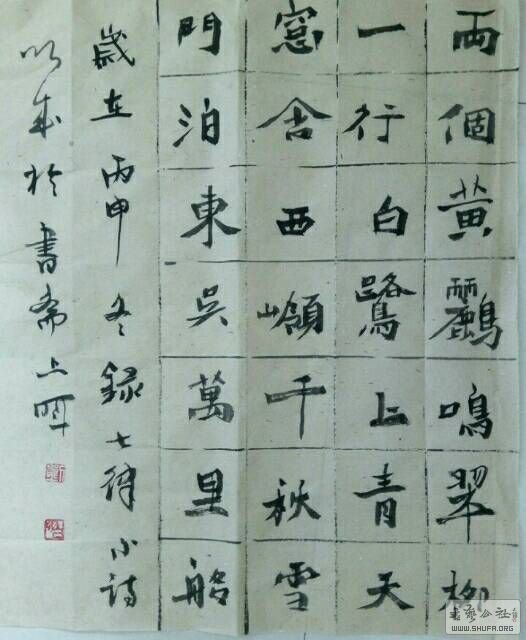 兩個黃鸝鳴翠柳
一行白鷺上青天
窓含西嶺千秋雪
門泊東吳萬里船
歲在丙申冬錄七律小詩
以成於書齋上
書藝公社
WWW.SHUFA.ORG